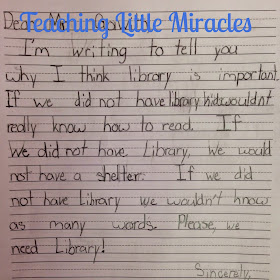 Teaching Little Miracles
Dear
I'm writing to tell you
why I think library is important.
If we did not have library kids wouldnt
really know how to read. If
we did not have Library, we would
not have a shelter. If we did
not have Library we wouldn't know
as many words. Please, we
need Library!
Sincerely,